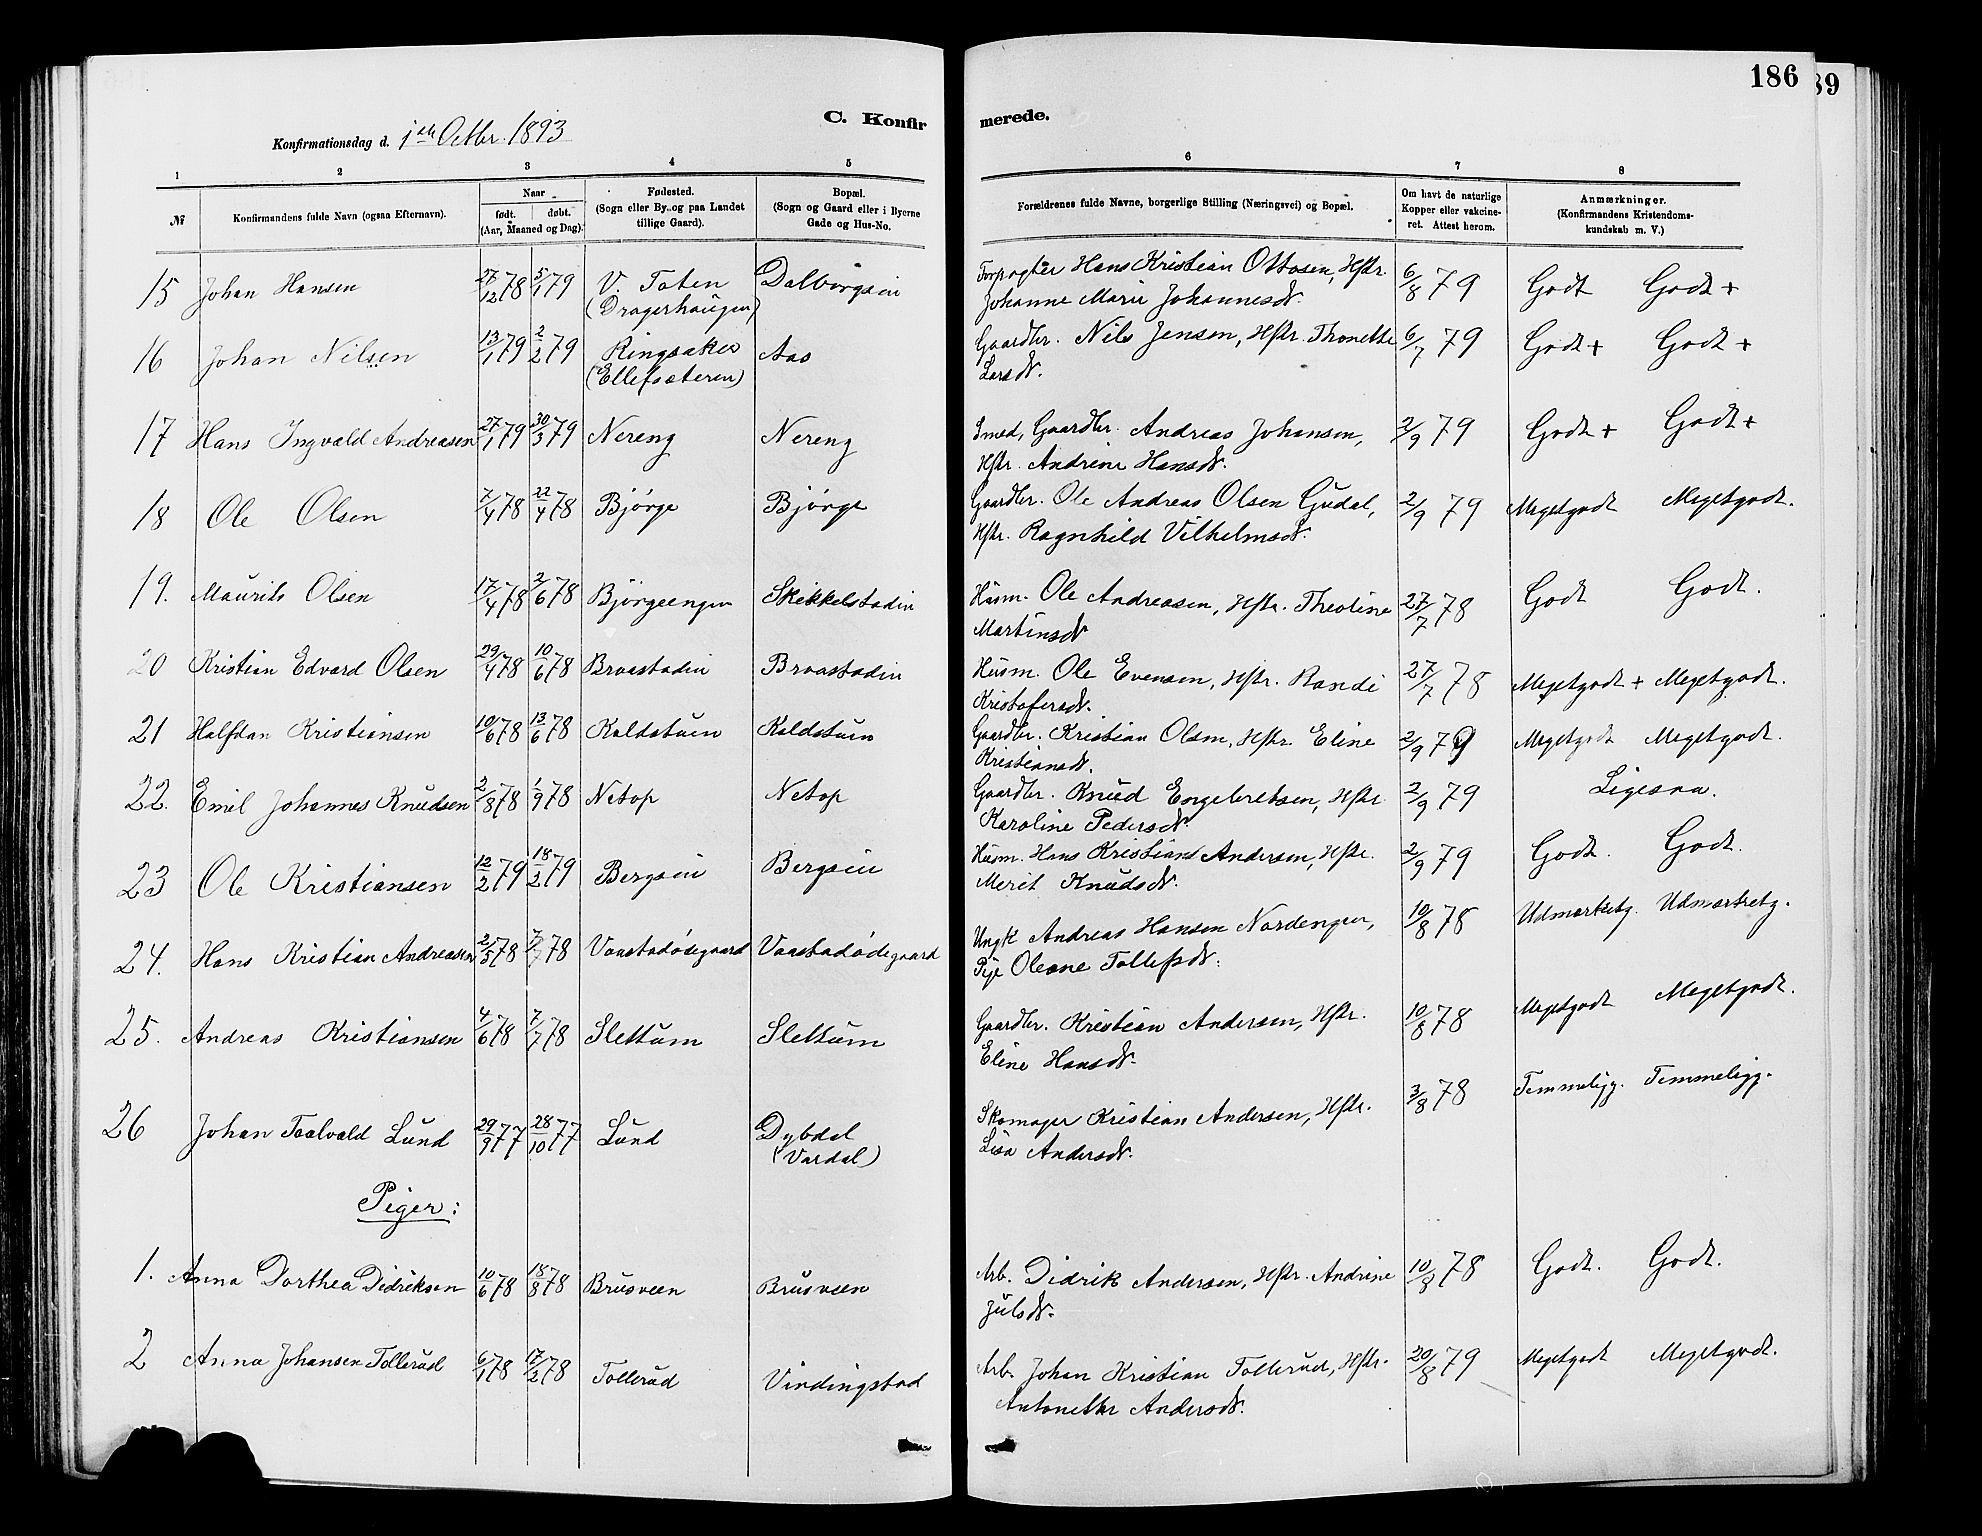 186
89
C. Konfir
merede.
Konfirmationsdag d. 1ste Octbr. 1893
1 2 3 4 5 6 7 8
№
Konfirmandens fulde Navn (ogsaa Efternavn).
Naar
født. døbt.
(Aar, Maaned og Dag).
Fødested.
(Sogn eller By og paa Landet
tillige Gaard).
Bopæl.
(Sogn og Gaard eller i Byerne
Gade og Hus-No.
Forældrenes fulde Navne, borgerlige Stilling (Næringsvei) og Bopæl.
Om havt de naturlige
Kopper eller vakcine-
ret. Attest herom.
Anmærkninger.
(Konfirmandens Kristendoms-
kundskab m. V.)
15 Johan Hansen 27/12 78 5/1 79 V. Toten Dalborgsein Forpagter Hans Kristian Ottosen, Hstr. 6/8 79 Godt Godt +
(Dragerhaugen) Johanne Marie Johannesdt.
16 Johan Nilsen 13/1 79 2/2 79 Ringsaker Aas Gaardbr. Nils Jensen, Hstr. Thonette 6/7 79 Godt + Godt +
(Ellefsæteren) Larsdt.
17 Hans Ingvald Andreasen 27/1 79 30/3 79 Nereng Nereng Smed, Gaardbr. Andreas Johansen, 2/9 79 Godt + Godt +
Hstr. Andrine Hansdt.
18 Ole Olsen 7/4 78 22/4 78 Bjørge Bjørge Gaardbr. Ole Andreas Olsen Gudal, 2/9 79 Megetgodt Megetgodt.
Hstr. Ragnhild Vilhelmsdt.
19. Maurits Olsen 17/4 78 2/6 78 Bjørgeengen Skikkelstadin Husm. Ole Andreasen, Hstr. Theoline 27/7 78 Godt Godt.
Martinsdt
20 Kristian Edvard Olsen 29/4 78 10/6 78 Braastadin Braastadin Husm. Ole Evensen, Hstr. Randi 27/7 78 Megetgodt + Megetgodt.
Kristofersdt.
21 Halfdan Kristiansen 10/6 78 13/6 78 Kaldstuen Kaldstuen Gaardbr. Kristian Olsen, Hstr. Eline 2/9 79 Megetgodt Megetgodt.
Kristiansdt.
22. Emil Johannes Knudsen 2/8 78 1/9 78 Netop Netop Gaardbr. Knud Engebretsen, Hstr. 2/9 79 Ligesaa.
Karoline Pedersdt.
23 Ole Kristiansen 12/2 79 18/2 79 Bergsein Bergsein Husm. Hans Kristians Andersen, Hstr. 2/9 79 Godt. Godt.
Merit Knudsdt.
24. Hans Kristian Andreasen 2/5 78 7/7 78 Vaastadødegaard Vaastadødegaard Ungk Andreas Hansen Nordengen, 10/8 78 Udmærketg. Udmærketg.
Pige Oleane Tollefsdt.
25. Andreas Kristiansen 4/6 78 7/7 78 Slettum Slettum Gaardbr. Kristian Andersen, Hstr. 10/8 78 Megetgodt Megetgodt.
Eline Hansdt.
26 Johan Taalvald Lund 29/9 77 28/10 77 Lund Dybdal Skomager Kristian Andersen, Hstr. 3/8 78 Temmeligg. Temmeligg.
(Vardal) Lisa Andersdt.
Piger:
1. Anna Dorthea Didriksen 10/6 78 18/8 78 Brusveen Brusveen Arb. Didrik Andersen, Hstr. Andrine 10/8 78 Godt. Godt.
Julsdt.
2 Anna Johansen Tollerud 6/1 78 17/2 78 Tollerud Vindingstad Arb. Johan Kristian Tollerud, Hstr. 20/8 79 Megetgodt Megetgodt.
Antonette Andersdt.